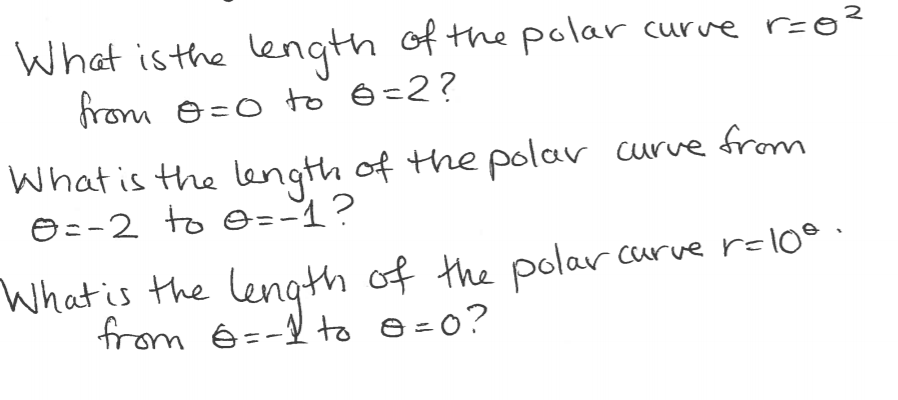 What is the length of the polar curve r=θ²
from θ=0 to θ=2?
What is the length of the polar curve from
θ=-2 to θ=-1?
What is the length of the polar curve r=10^θ.
from θ=-1 to θ=0?